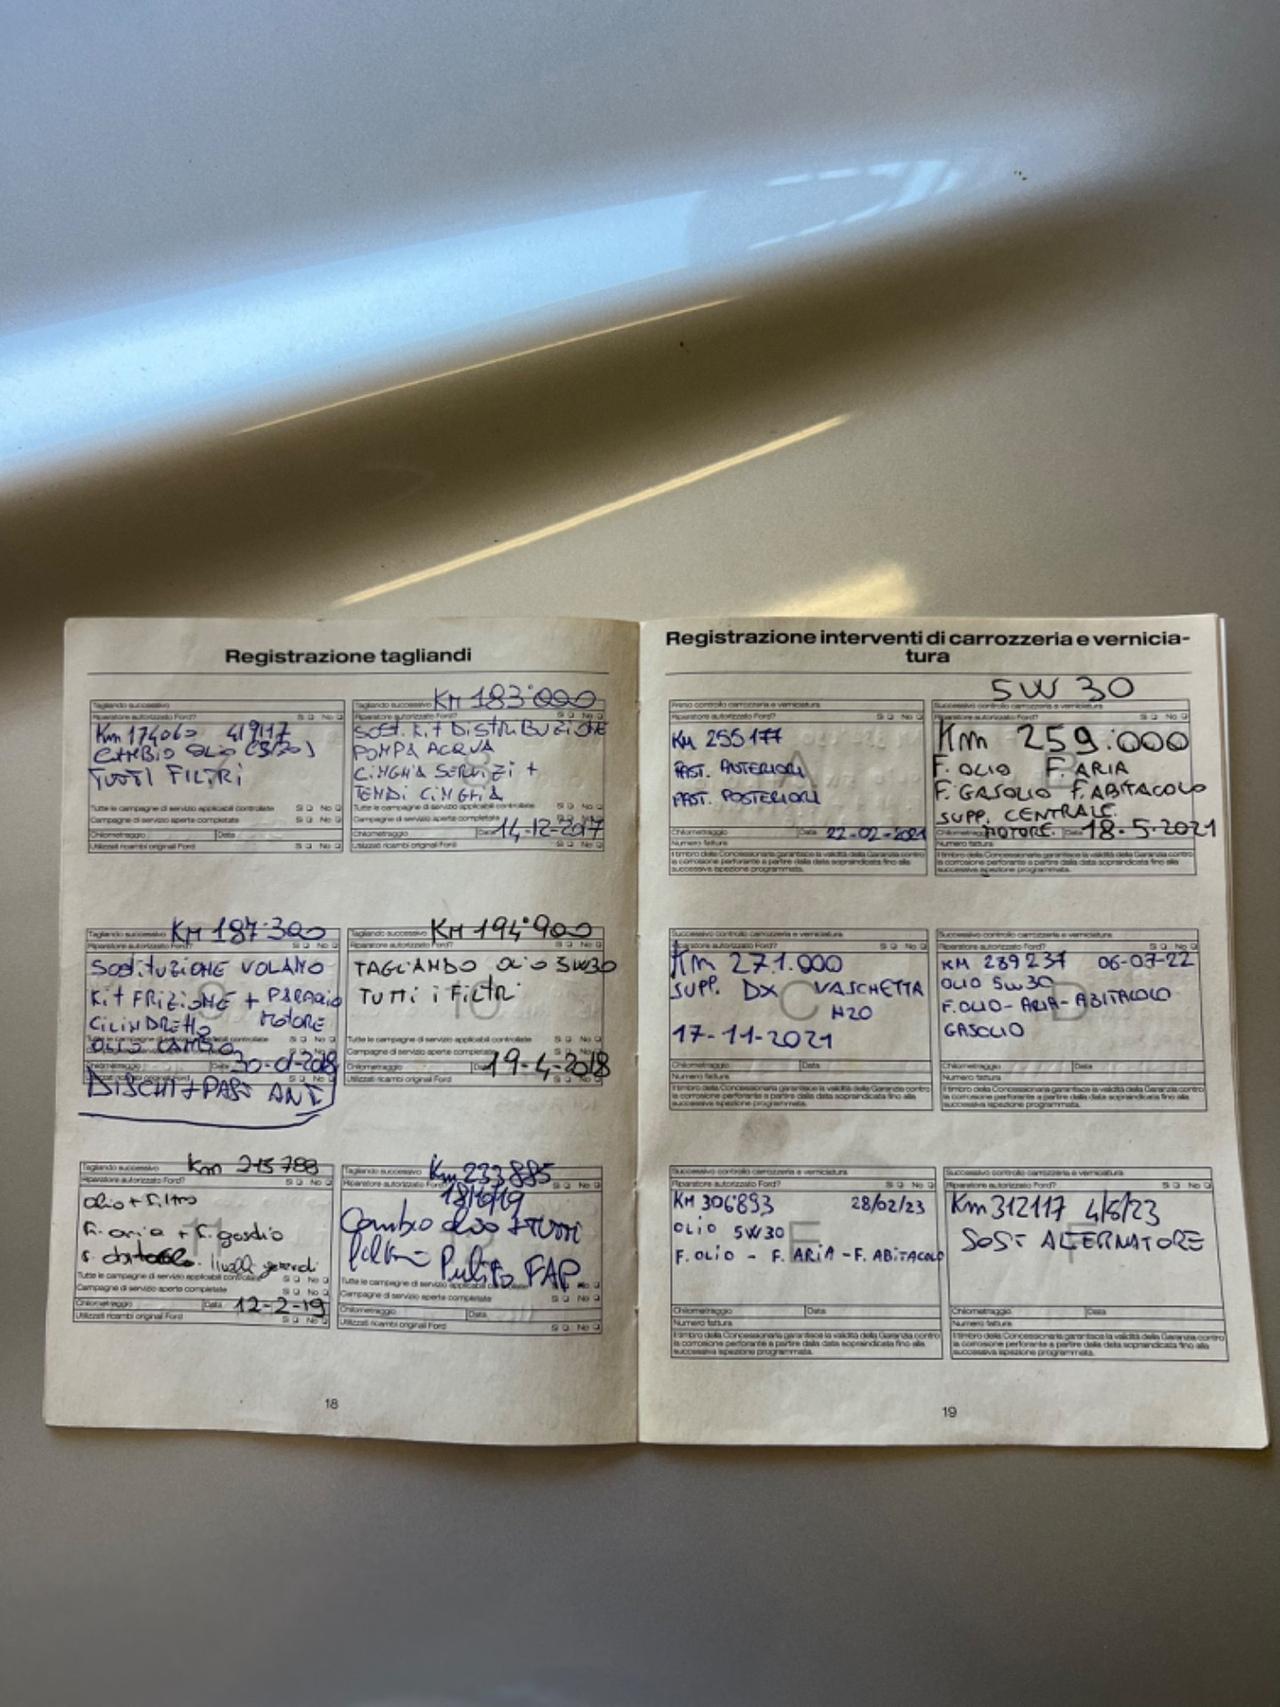 Registrazione tagliandi
Tagliando successivo
Riparatore autorizzato Ford? Sì No
Km 174060 4/9/17
CAMBIO OLIO (5/30)
TUTTI FILTRI
Tutte le campagne di servizio applicabili controllate Sì No
Campagne di servizio aperte completate Sì No
Chilometraggio Data
Utilizzati ricambi originali Ford Sì No
KM 183.000
SOST. Kit DISTRIBUZIONE
POMPA ACQUA
CINGHIA SERVIZI +
TENDI CINGHIA
Tutte le campagne di servizio applicabili controllate Sì No
Campagne di servizio aperte completate Sì No
Chilometraggio Data 14-12-2017
Utilizzati ricambi originali Ford Sì No
Tagliando successivo KM 187.300
Riparatore autorizzato Ford? Sì No
SOSTITUZIONE VOLANO
Kit FRIZIONE + PARAOLIO
CILINDRETTO MOTORE
OLIO CAMBIO
30-01-2018
DISCHI + PAST ANT
Tagliando successivo KM 194.900
Riparatore autorizzato Ford? Sì No
TAGLIANDO OLIO 5W30
TUTTI i FILTRI
Tutte le campagne di servizio applicabili controllate Sì No
Campagne di servizio aperte completate Sì No
Chilometraggio Data 19-4-2018
Utilizzati ricambi originali Ford Sì No
Tagliando successivo Km 215788
Riparatore autorizzato Ford? Sì No
olio + filtro
F. aria + F. gasolio
livelli generali
Tutte le campagne di servizio applicabili controllate Sì No
Campagne di servizio aperte completate Sì No
Chilometraggio Data 12-2-19
Utilizzati ricambi originali Ford Sì No
Tagliando successivo Km 233885
Riparatore autorizzato Ford? 18/10/19 Sì No
Cambio olio + TUTTI
filtri Pulito FAP
Tutte le campagne di servizio applicabili controllate
Campagne di servizio aperte completate Sì No
Chilometraggio Data
Utilizzati ricambi originali Ford Sì No
18
Registrazione interventi di carrozzeria e vernicia-
tura
Primo controllo carrozzeria e verniciatura
Riparatore autorizzato Ford? Sì No
KM 255177
PAST. ANTERIORI
PAST. POSTERIORI
Chilometraggio Data 22-02-2021
Numero fattura
Il timbro della Concessionaria garantisce la validità della Garanzia contro
la corrosione perforante a partire dalla data sopraindicata fino alla
successiva ispezione programmata.
5W 30
Successivo controllo carrozzeria e verniciatura
Riparatore autorizzato Ford? Sì No
Km 259.000
F. OLIO F. ARIA
F. GASOLIO F. ABITACOLO
SUPP. CENTRALE
MOTORE. 18-5-2021
Numero fattura
Il timbro della Concessionaria garantisce la validità della Garanzia contro
la corrosione perforante a partire dalla data sopraindicata fino alla
successiva ispezione programmata.
Successivo controllo carrozzeria e verniciatura
Riparatore autorizzato Ford? Sì No
Km 271.000
SUPP. DX VASCHETTA
H2O
17-11-2021
Chilometraggio Data
Numero fattura
Il timbro della Concessionaria garantisce la validità della Garanzia contro
la corrosione perforante a partire dalla data sopraindicata fino alla
successiva ispezione programmata.
Successivo controllo carrozzeria e verniciatura
Riparatore autorizzato Ford? Sì No
KM 289237 06-07-22
OLIO 5W30
F. OLIO - ARIA - ABITACOLO
GASOLIO
Chilometraggio Data
Numero fattura
Il timbro della Concessionaria garantisce la validità della Garanzia contro
la corrosione perforante a partire dalla data sopraindicata fino alla
successiva ispezione programmata.
Successivo controllo carrozzeria e verniciatura
Riparatore autorizzato Ford? Sì No
KM 306893 28/02/23
OLIO 5W30
F. OLIO - F. ARIA - F. ABITACOLO
Chilometraggio Data
Numero fattura
Il timbro della Concessionaria garantisce la validità della Garanzia contro
la corrosione perforante a partire dalla data sopraindicata fino alla
successiva ispezione programmata.
Successivo controllo carrozzeria e verniciatura
Riparatore autorizzato Ford? Sì No
Km 312117 4/5/23
SOST ALTERNATORE
Chilometraggio Data
Numero fattura
Il timbro della Concessionaria garantisce la validità della Garanzia contro
la corrosione perforante a partire dalla data sopraindicata fino alla
successiva ispezione programmata.
19